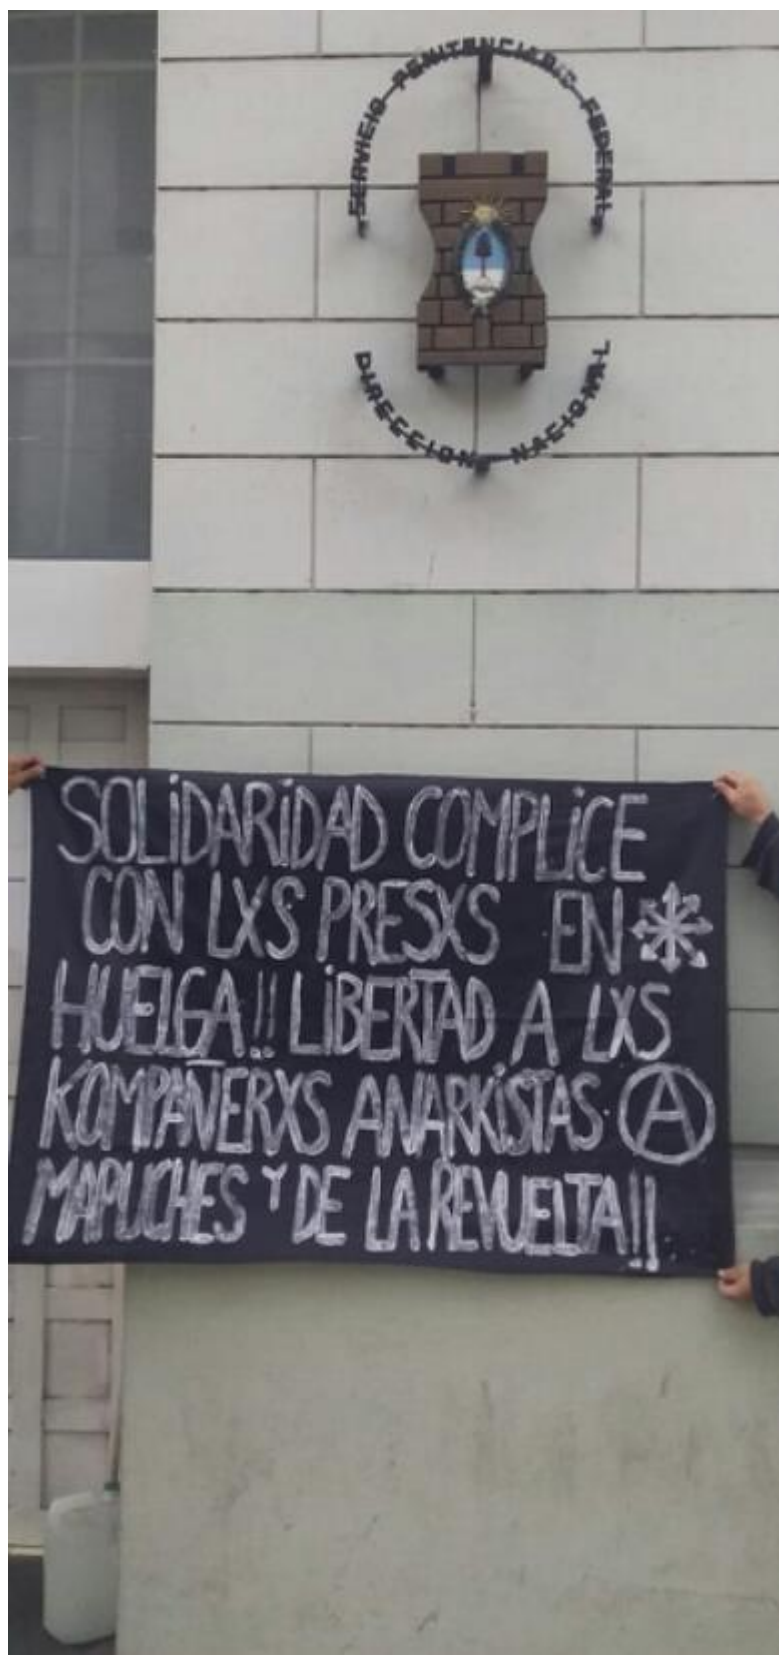 SERVICIO PENITENCIARIO FEDERAL
DIRECCION NACIONAL
SOLiDARiDAD COMPLiCE
CON LXS PRESXS EN
HUELGA!! LiBERTAD A LXS
KOMPAÑERXS ANARKiSTAS A
MAPUCHES Y DE LA REVUELTA!!